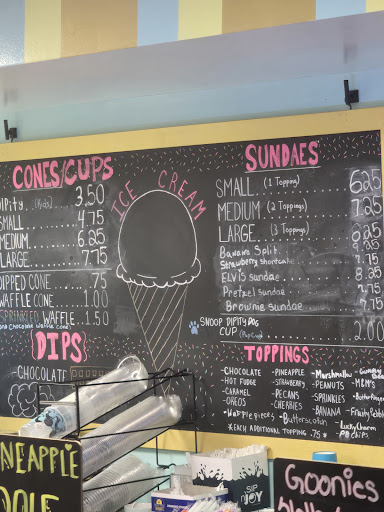 CONES/CUPS
DIPity..(Kids) 3.50
SMALL 4.75
MEDIUM 6.25
LARGE 7.75
DIPPED CONE .75
WAFFLE CONE 1.00
SPRINKLED WAFFLE 1.50
Chocolate waffle cone
DIPS
CHOCOLATE
ICE CREAM
SUNDAES
SMALL (1 Topping) 6.25
MEDIUM (2 Toppings) 7.25
LARGE (3 Toppings) 8.25
Banana Split
Strawberry shortcake
ELVIS sundae
Pretzel sundae
Brownie sundae
SNOOP DIPITY DOG CUP 2.00
TOPPINGS
-CHOCOLATE
-HOT FUDGE
-CARAMEL
-OREOS
-Waffle pieces
-PINEAPPLE
-STRAWBERRY
-PECANS
-CHERRIES
-Butterscotch
-Marshmallow
-PEANUTS
-SPRINKLES
-BANANA
-Lucky Charm
-M&M's
-Butterfinger
-Fruity Pebbles
*EACH ADDITIONAL TOPPING .75*
NEAPPLE
OLE
SIP
N
JOY
Goonies